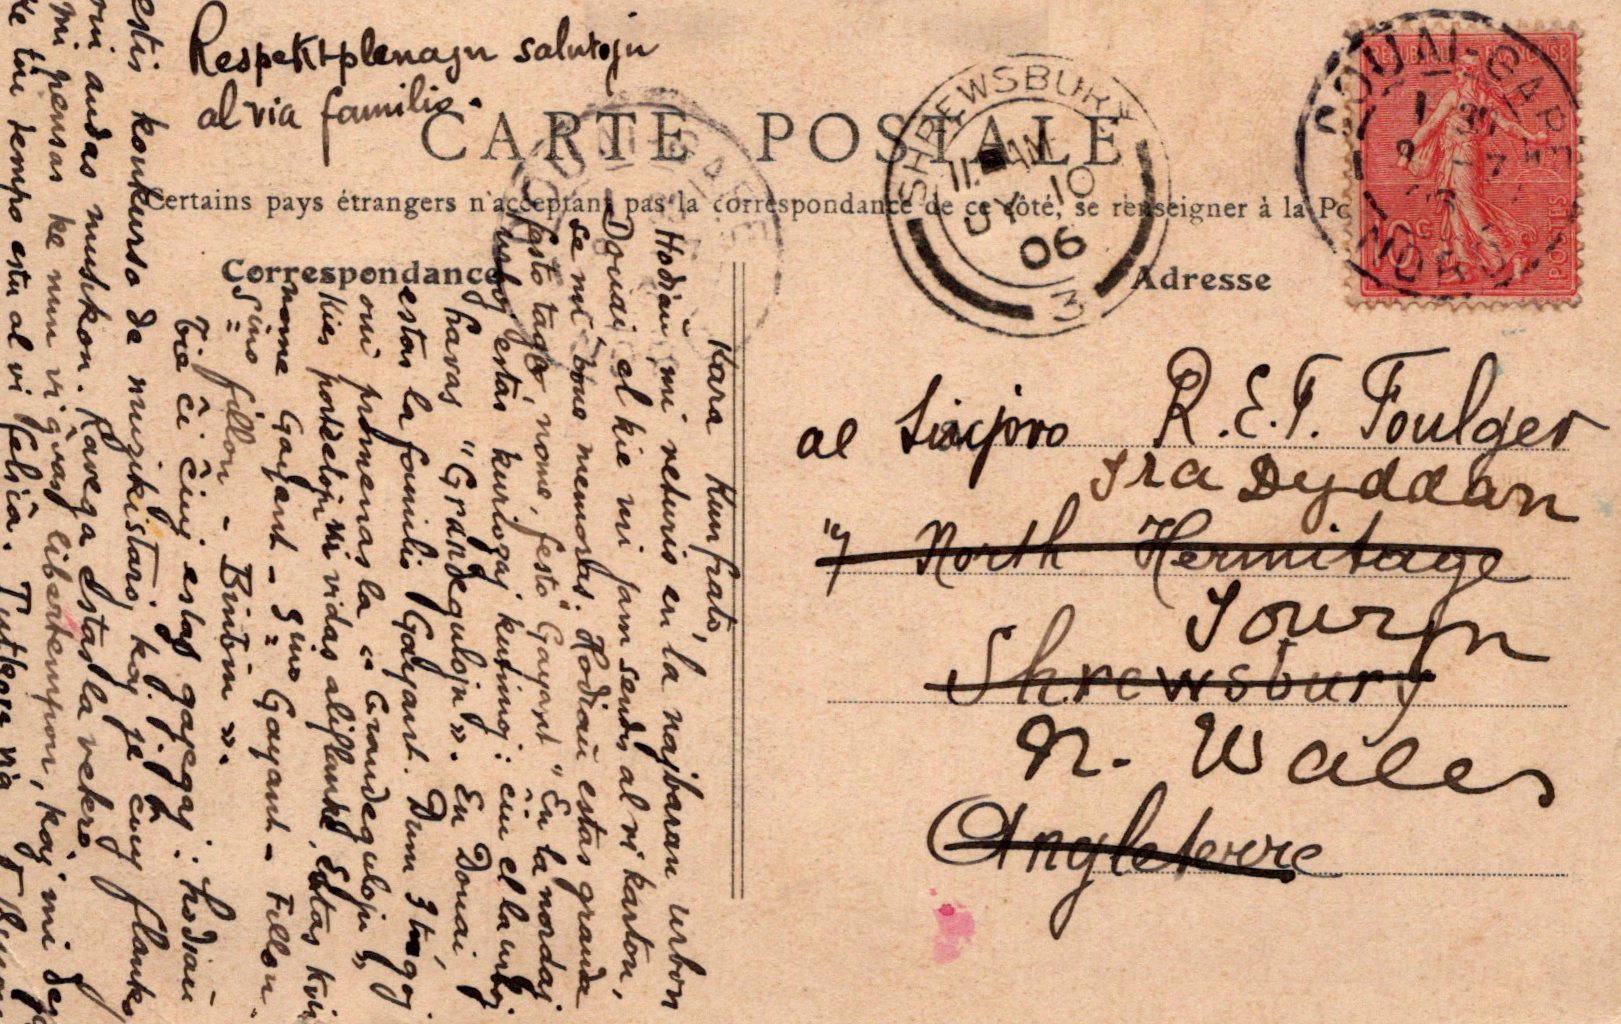 Respekt-plenajn salutojn
al via familio.
CARTE POSTALE
Certains pays étrangers n'acceptant pas la correspondance de ce côté, se renseigner à la Po
Correspondance
Adresse
SHREWSBURY
11 AM
JY 10
06
3
RÉPUBLIQUE FRANÇAISE
10 c
POSTES
DOUAI-GARE
NORD
al Sinjoro R. E. F. Foulger
Dyddan
7 North Hermitage
Shrewsbury
N. Wales
Angleterre
Kara Kunfrato,
Hodiaŭ mi returis en la najbaran urbon
Douai, el kie mi jam sendis al vi karton,
se mi bone memoras. Hodiaŭ estas granda
festo tago, nome, festo "Gayant" En la nordaj
urboj estas kurioza kutimoj: ĉiu el la urboj
havas "Grandegulojn". En Douai
estas la familio Gayant. Dum 3 tagoj
oni promenas la "Grandegulojn"
kies portretojn vi vidas aliflanke. Estas kvin
nome Gayant - Sino Gayant - Fillon.
Sino fillon - Binbin".
Tie ĉi ĉiuj estas gayegaj: hodiaŭ
estis konkurso de muzikistaro, kaj je ĉiuj flankoj
oni aŭdas muzikon. Ravega estas la vetero
mi pensas ke nun vi ĝuas libertempon, kaj mi
tiu tempo estu al vi feliĉa. Tutkore via